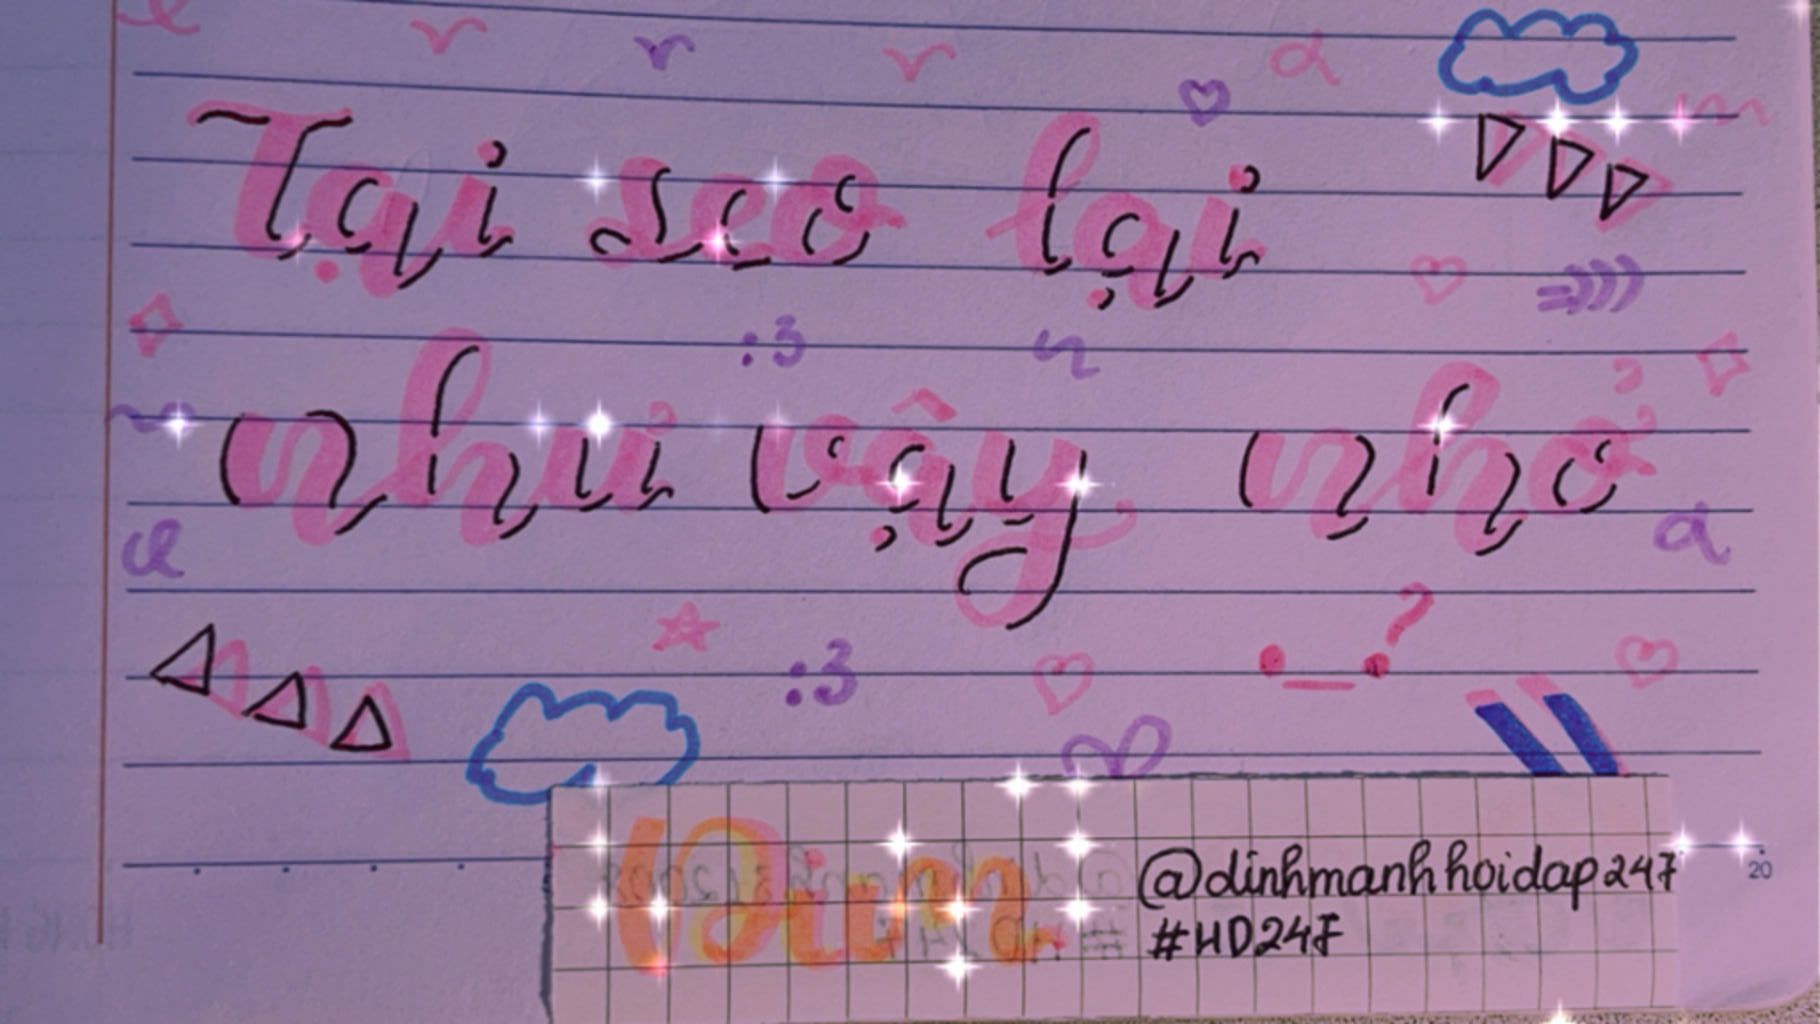 Tại sao lại
:3
như vậy nhở
a
?
:3
Dim
@dinhmanhhoidap247
#HD247
20